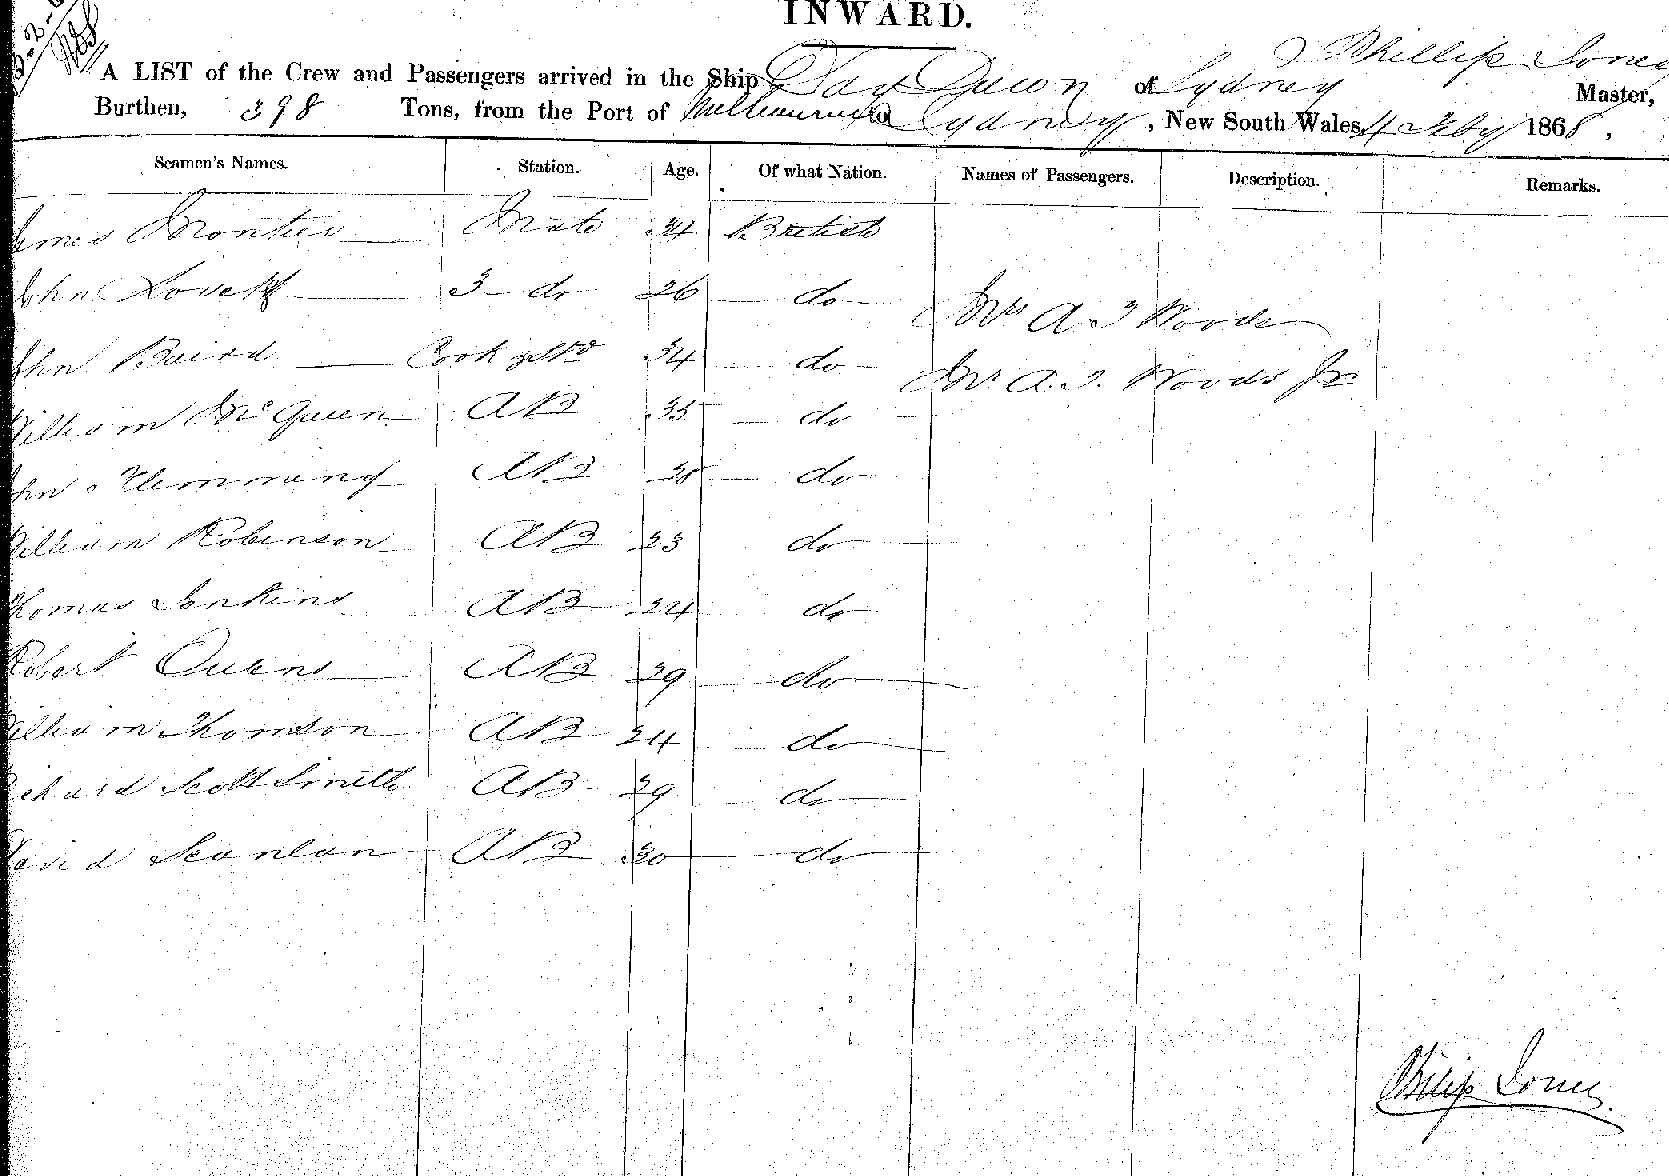 INWARD.
Phillip Jones
A LIST of the Crew and Passengers arrived in the Ship Day Dawn of Sydney Master,
Burthen, 398 Tons, from the Port of Melbourne to Sydney, New South Wales, 4 Feby 1868.
Seamen's Names. Station. Age. Of what Nation. Names of Passengers. Description. Remarks.
James Mate 34 British
John Lovett 3 - do 26 do
Mrs A J Woods
John Baird Cook & Std 34 do
Mr A. J. Woods Jr.
William McQueen AB 35 do
John Flemming AB do
William Robinson AB 23 do
Thomas Jenkins AB 24 do
Robert Owens AB 29 do
William Thomson AB 24 do
Richard Scott Smith AB 29 do
David Scanlan AB 30 do
Philip Jones